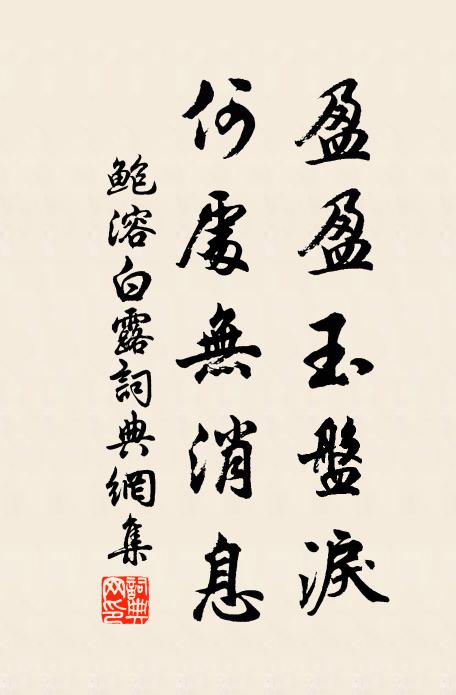 盈盈玉盤淚
何處無消息
鮑溶白露詞典網集
詞典網印